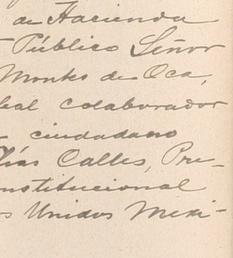 de Hacienda
Público Señor
Montes de Oca,
eal colaborador
ciudadano
lías Calles, Pre-
nstitucional
os Unidos Mexi-